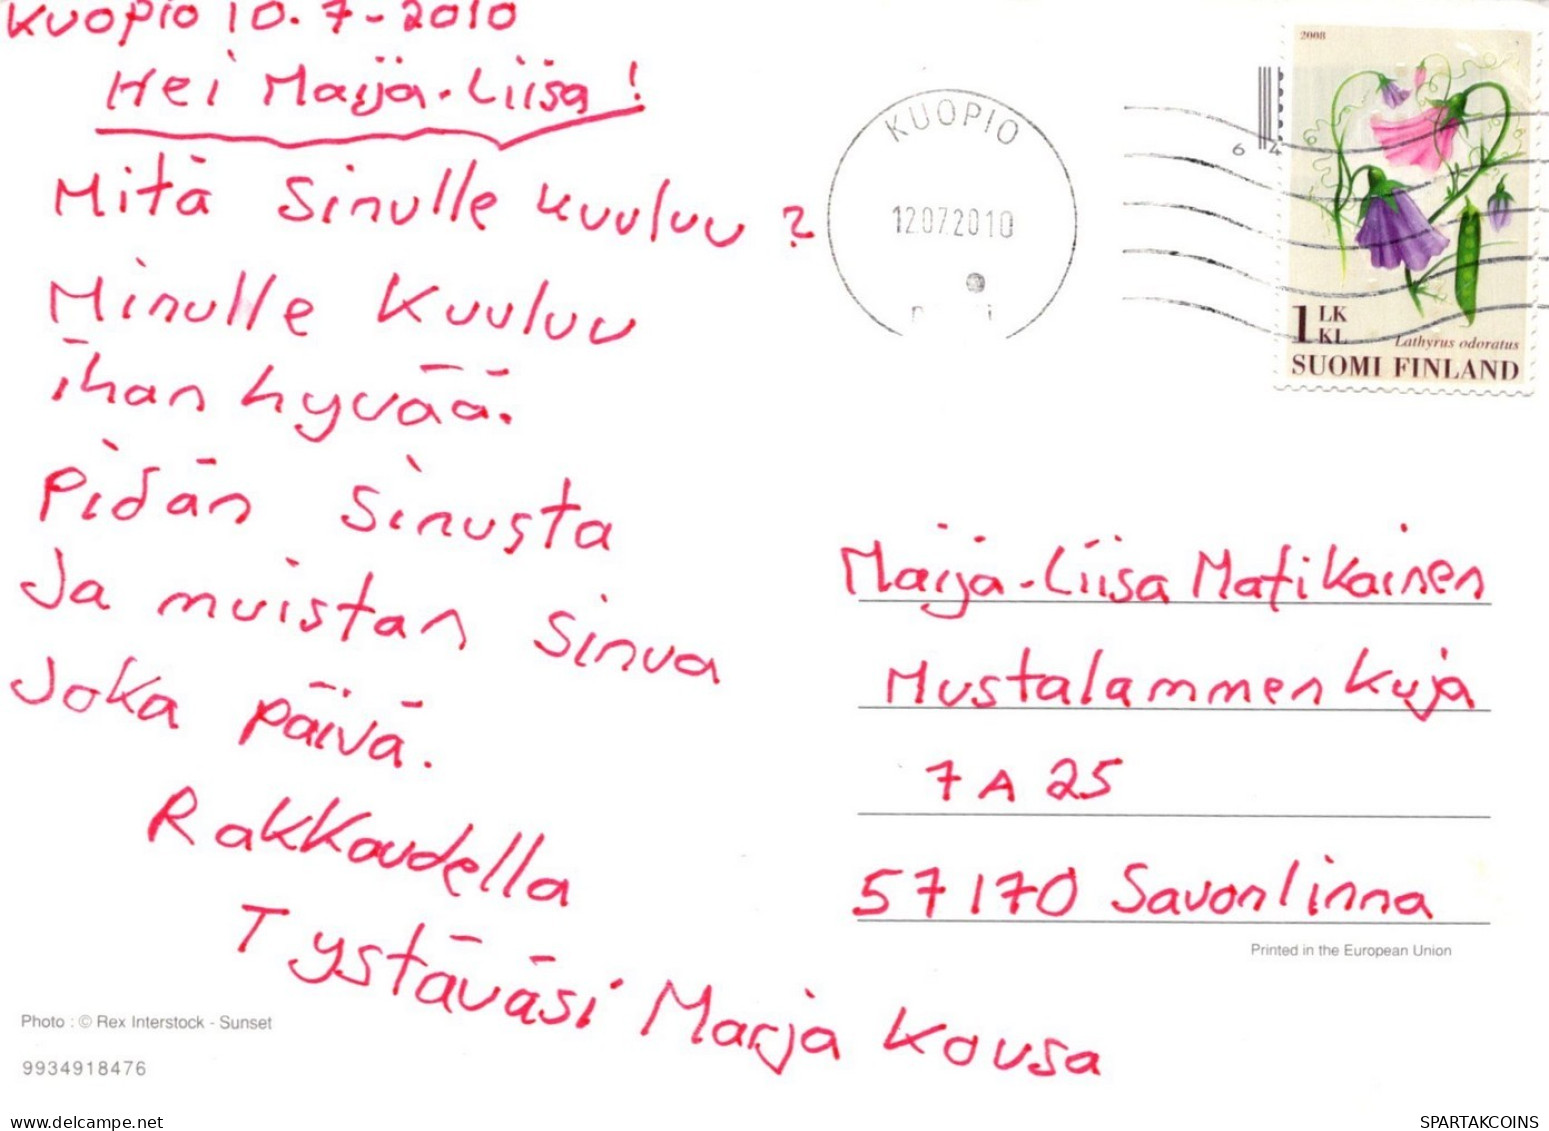 Kuopio 10.7-2010
Hei Maija-Liisa!
Mitä Sinulle kuuluu?
Minulle Kuuluu
ihan hyvää.
Pidän Sinusta
Ja muistan Sinua
Joka päivä.
Rakkaudella
Tystäväsi Marja Kousa
Photo : © Rex Interstock - Sunset
9934918476
KUOPIO
12.07.2010
64
2008
1 LK
KL
Lathyrus odoratus
SUOMI FINLAND
Maija-Liisa Matikainen
Mustalammenkuja
7 A 25
57170 Savonlinna
Printed in the European Union
www.delcampe.net
SPARTAKCOINS